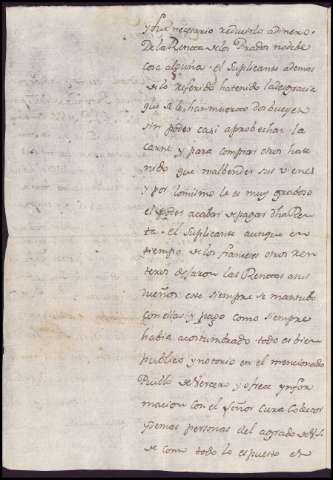 y fue necesario reducirlo a dinero.
De la Renta de los Prados no debe
cosa alguna. el Suplicante ademas
de lo referido ha tenido la desgracia
que se le han muerto dos bueyes
sin poder casi aprobechar la
carne y para comprar otros ha te
nido que malbender sus vienes
y por lo mismo le es muy gravoso
el poder acabar de pagar dha Ren
ta. el Suplicante aunque en
tiempo de los franceses otros ren
teros dejaron las Rentas a sus
dueños este siempre se mantubo
con ellas y pago como siempre
habia acostumbrado todo es bien
publico y notorio en el mencionado
Pueblo de Hercero y ofrece ynfor
macion con el Señor Cura
y demas personas del agrado de V.S.
de como todo lo espuesto es